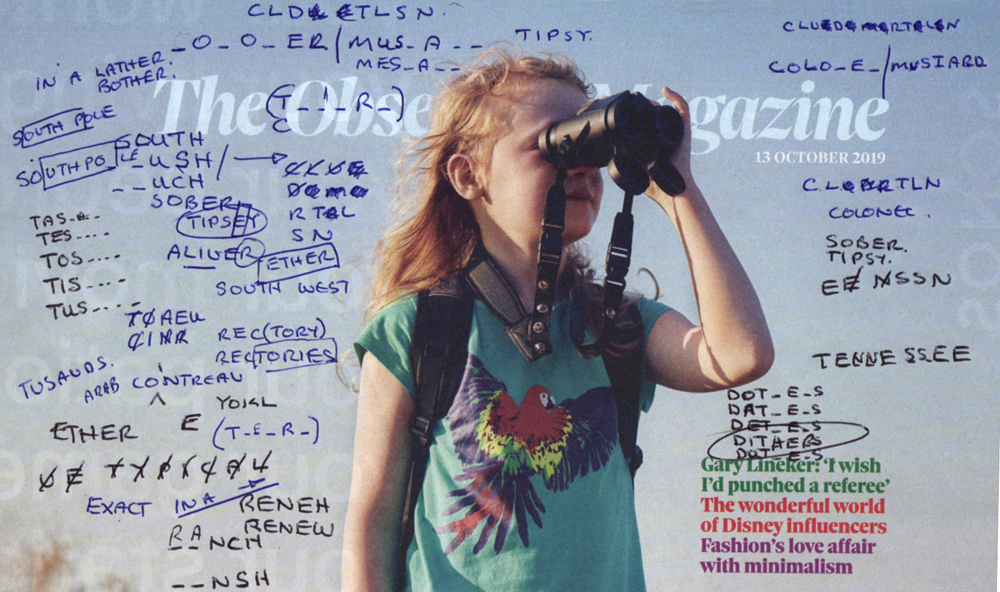 CLD ETLSN.
_O_O_ER/MUS_A__
MES_A__
TIPSY.
IN A LATHER.
BOTHER.
The Obse Magazine
13 OCTOBER 2019
(T_I_R_)
C
SOUTH POLE
SOUTHPO
SOUTH
LE_USH/
__UCH
SOBER
TIPSEY
ALIVER
ETHER
SOUTH WEST
R TAL
SN
TAS_E_
TES....
TOS....
TIS....
TUS....
TOAEU
CINR
REC(TORY)
RECTORIES
TUSAUDS.
ARAB COINTREAU
YOKL
ETHER E (T_E_R_)
EXACT IN A
RENEH
RENEW
RANCH
__NSH
COLO_E_/MUSTARD
COLONEL.
SOBER.
TIPSY.
TENNESSEE
DOT_E_S
DAT_E_S
DET_E_S
DITHERS
DOT_E_S
Gary Lineker: 'I wish
I'd punched a referee'
The wonderful world
of Disney influencers
Fashion's love affair
with minimalism